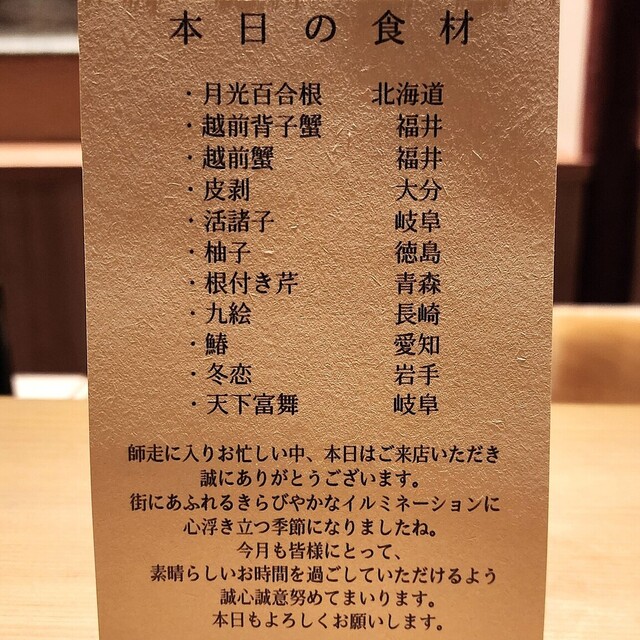 本日の食材
・月光百合根 北海道
・越前背子蟹 福井
・越前蟹 福井
・皮剥 大分
・活諸子 岐阜
・柚子 徳島
・根付き芹 青森
・九絵 長崎
・鰆 愛知
・冬恋 岩手
・天下富舞 岐阜
師走に入りお忙しい中、本日はご来店いただき
誠にありがとうございます。
街にあふれるきらびやかなイルミネーションに
心浮き立つ季節になりましたね。
今月も皆様にとって、
素晴らしいお時間を過ごしていただけるよう
誠心誠意努めてまいります。
本日もよろしくお願いします。